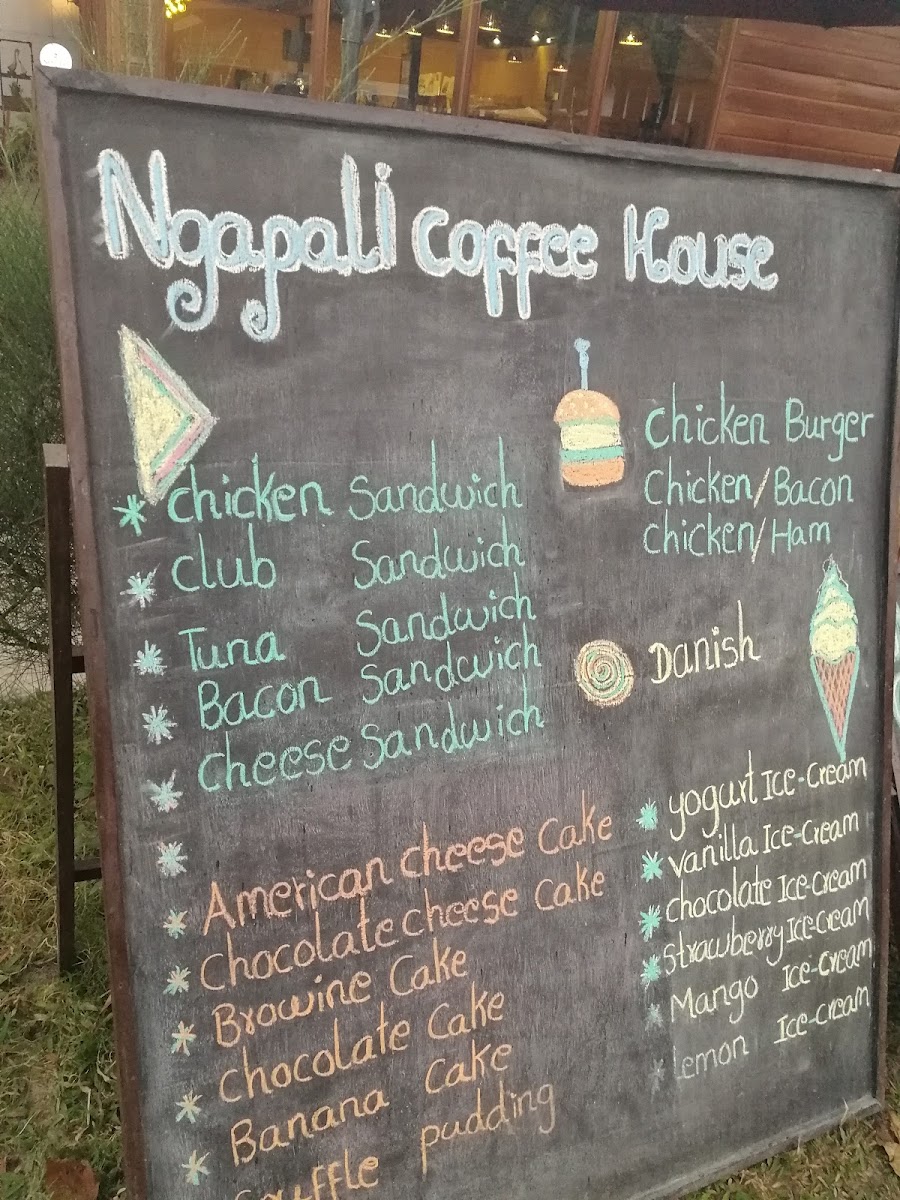 Ngapali Coffee House
Chicken Sandwich
Club Sandwich
Tuna Sandwich
Bacon Sandwich
Cheese Sandwich
Chicken Burger
Chicken/Bacon
Chicken/Ham
Danish
American Cheese Cake
Chocolate Cheese Cake
Browine Cake
Chocolate Cake
Banana Cake
Souffle pudding
yogurt Ice-Cream
vanilla Ice-Cream
chocolate Ice-cream
strawberry Ice-cream
Mango Ice-Cream
lemon Ice-cream